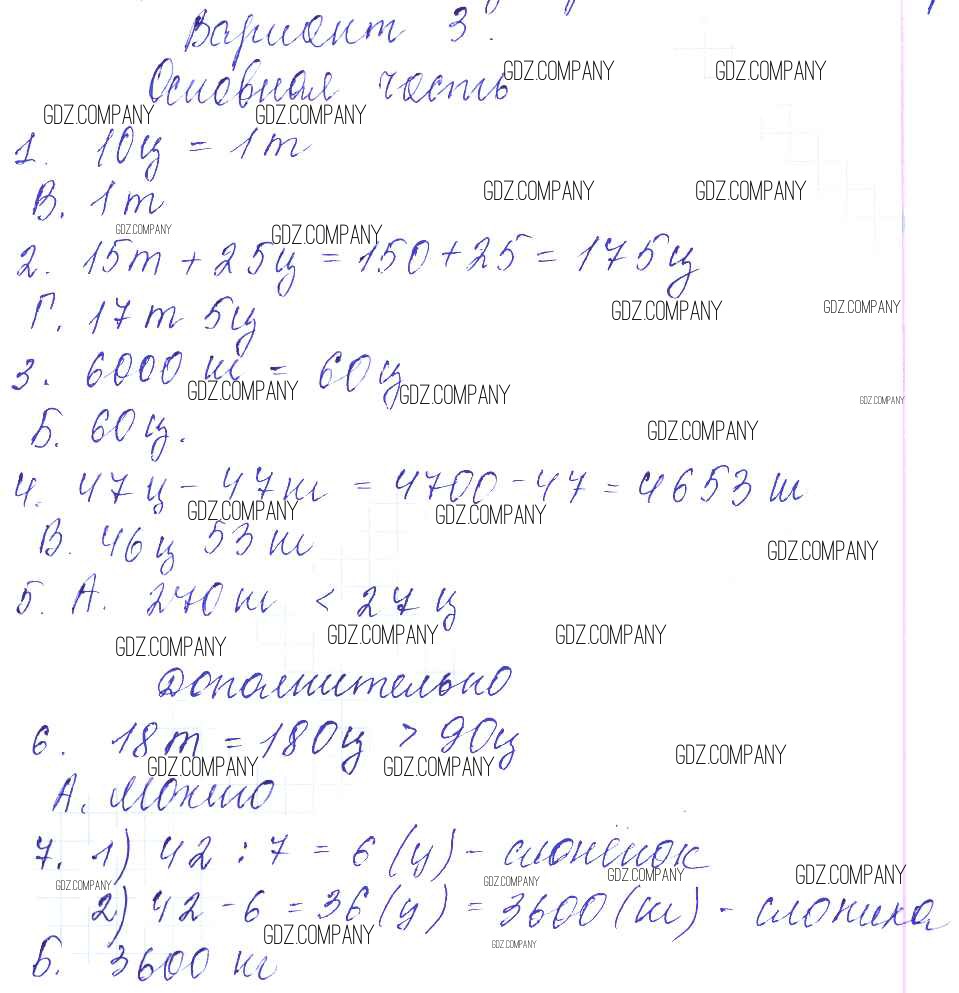 Вариант 3.
Основная часть
GDZ.COMPANY GDZ.COMPANY
GDZ.COMPANY GDZ.COMPANY
1. 10ц = 1т
В. 1т
GDZ.COMPANY GDZ.COMPANY
GDZ.COMPANY GDZ.COMPANY
2. 15т + 25ц = 150 + 25 = 175ц
Г. 17т 5ц
GDZ.COMPANY GDZ.COMPANY
3. 6000 кг = 60ц
GDZ.COMPANY GDZ.COMPANY GDZ.COMPANY
Б. 60ц.
GDZ.COMPANY
4. 47ц - 47кг = 4700 - 47 = 4653 кг
GDZ.COMPANY GDZ.COMPANY
В. 46ц 53 кг
GDZ.COMPANY
5. А. 270 кг < 27ц
GDZ.COMPANY GDZ.COMPANY GDZ.COMPANY
Дополнительно
6. 18т = 180ц > 90ц
GDZ.COMPANY GDZ.COMPANY GDZ.COMPANY
А. Можно
7. 1) 42 : 7 = 6 (ц) - слонёнок
GDZ.COMPANY GDZ.COMPANY GDZ.COMPANY GDZ.COMPANY
2) 42 - 6 = 36 (ц) = 3600 (кг) - слониха
GDZ.COMPANY GDZ.COMPANY
Б. 3600 кг